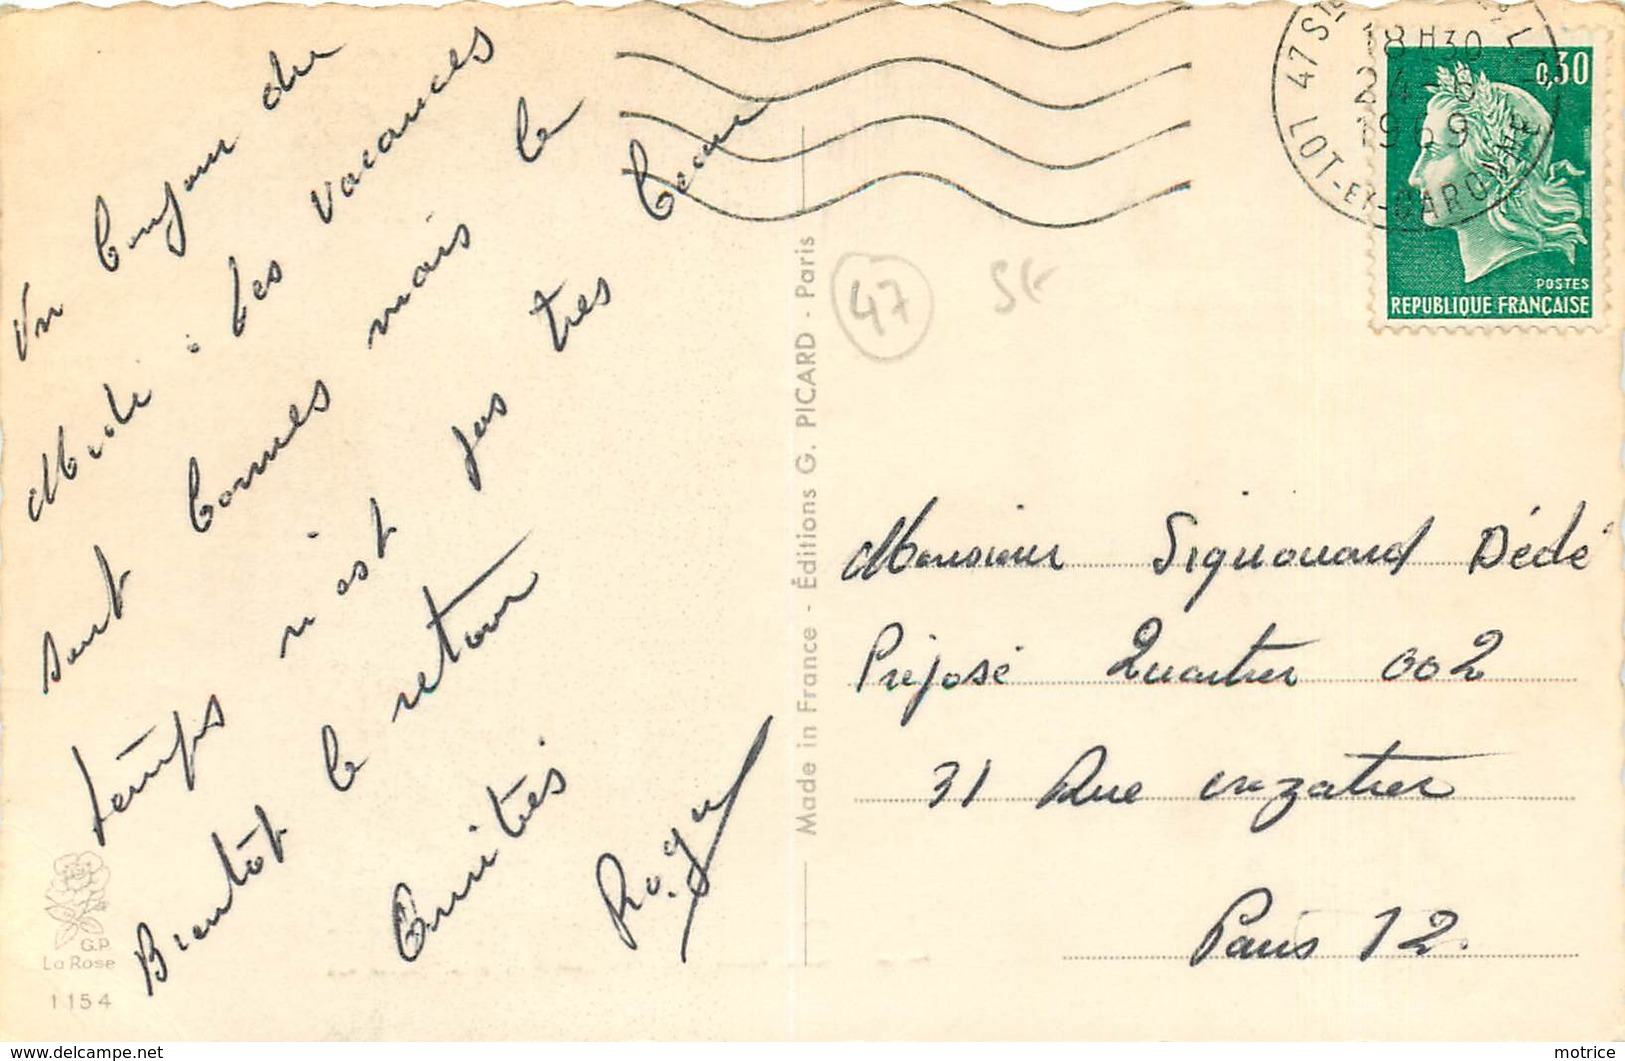 Un bonjour du
Midi : les vacances
sont bonnes mais le
temps n'est pas très beau
Bientôt le retour
Amitiés
Roger
G.P.
La Rose
1154
Made in France - Éditions G. PICARD - Paris
47
SF
47 Ste
LOT-ET-GARONNE
18 H30
24
1969
0,30
POSTES
REPUBLIQUE FRANÇAISE
Monsieur Signouard Dédé
Préposé Quartier 002
31 Rue crozatier
Paris 12.
http://www.delcampe.net
motrice